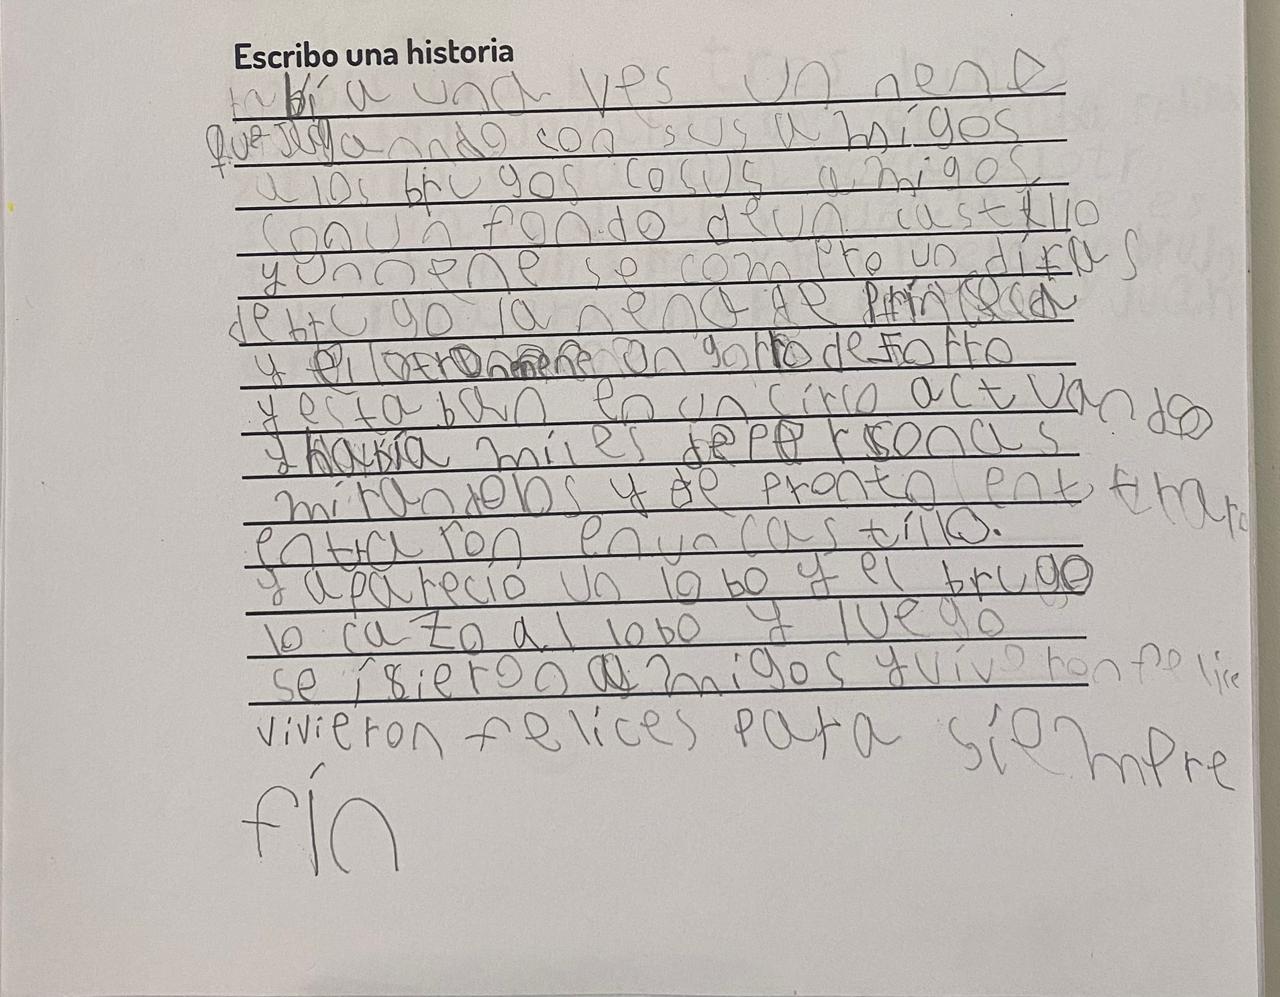 Escribo una historia
abía una ves un nene
que jugando con sus amigos
a los brugos cosus amigos
con un fondo de un castillo
y un nene se compro un difras
de brugo la nena de princesa
y el otro nene un gorro de forro
y estaban en un circo actuando
y había miles de personas
mirandolos y de pronto ent traro
entraron en un castillo.
y aparecio un lobo y el brugo
lo cazo al lobo y luego
se isieron amigos y viveron felice
vivieron felices para siempre
fin